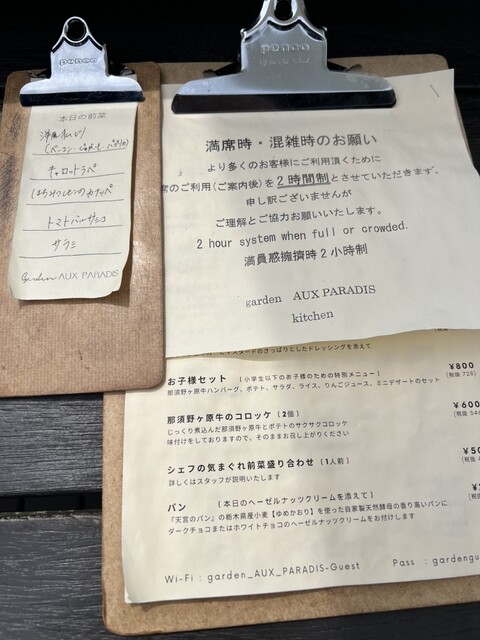 penco
本日の前菜
キャロットラペ
トマトバルサミコ
サラミ
garden AUX PARADIS
penco
満席時・混雑時のお願い
より多くのお客様にご利用頂くために
席のご利用(ご案内後)を2時間制とさせていただきます。
申し訳ございませんが
ご理解とご協力お願いいたします。
2 hour system when full or crowded.
満員惑擁擠時2小時制
garden AUX PARADIS
kitchen
スタードのさっぱりとしたドレッシングを添えて
お子様セット (小学生以下のお子様のための特別メニュー) ¥800
那須野ヶ原牛ハンバーグ、ポテト、サラダ、ライス、りんごジュース、ミニデザートのセット (税抜 728)
那須野ヶ原牛のコロッケ (2個) ¥600
じっくり煮込んだ那須野ヶ原牛とポテトのサクサクコロッケ (税抜
味付けをしておりますので、そのままお召し上がりください
シェフの気まぐれ前菜盛り合わせ (1人前)
詳しくはスタッフが説明いたします (税抜
パン (本日のヘーゼルナッツクリームを添えて)
『天宮のパン』の栃木県産小麦【ゆめかおり】を使った自家製天然酵母の香り高いパンに
ダークチョコまたはホワイトチョコのヘーゼルナッツクリームをお付けします
Wi-Fi : garden_AUX_PARADIS-Guest Pass : gardengu